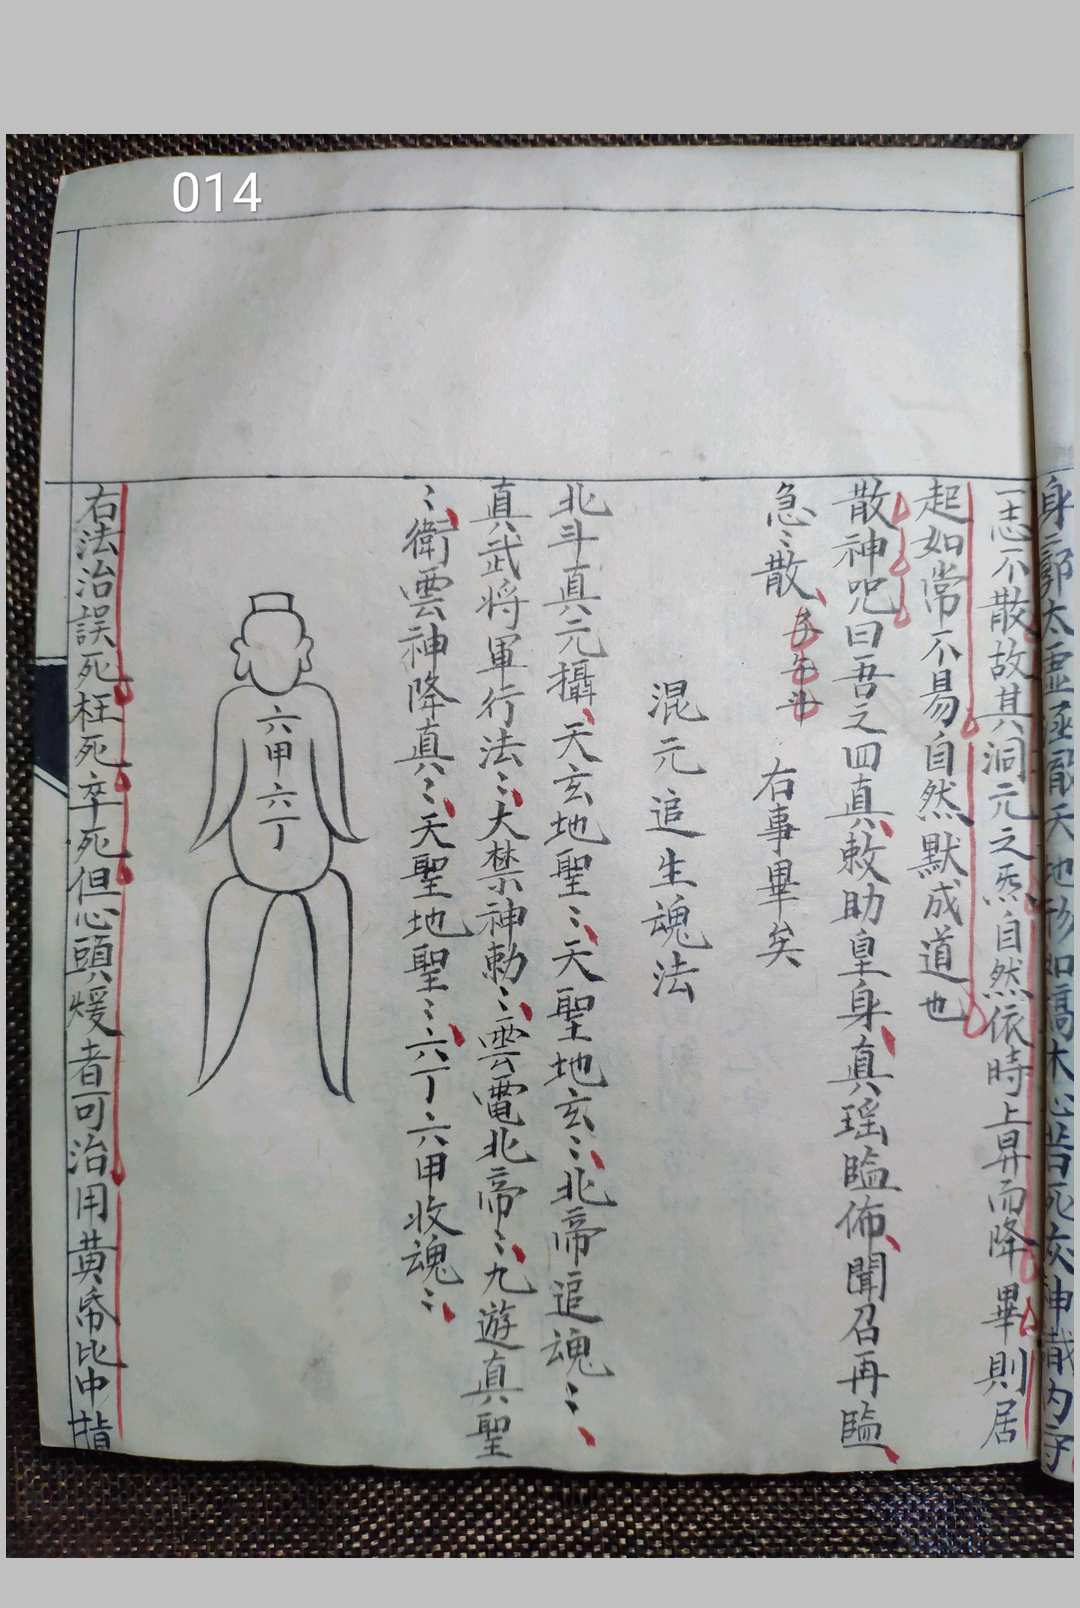 014
一志不散故其洞元之炁自然依時上昇而降畢則居
起如常不易自然默成道也
散神咒曰吾之四真敕助皇身真瑶臨佈聞召再臨
急〻散
右事畢矣
混元追生魂法
北斗真元攝天玄地聖〻天聖地玄〻北帝追魂〻
真武将軍行法〻大禁神勅〻雲電北帝〻九遊真聖
〻衛雲神降真〻天聖地聖〻六丁六甲收魂〻
六甲六丁
右法治誤死枉死卒死但心頭煖者可治用黄帋比中指